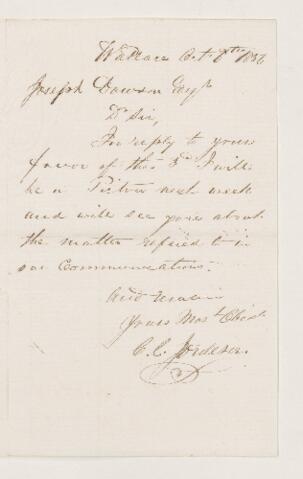 Wallace Oct 8th 1886
Joseph Dawson Esqr
Dr Sir,
In reply to your
favor of the 3d I will
be in Pictou next week
and will see you about
the matter refered to in
our Communications.
And remain
Yours Most Obdt
C. C.